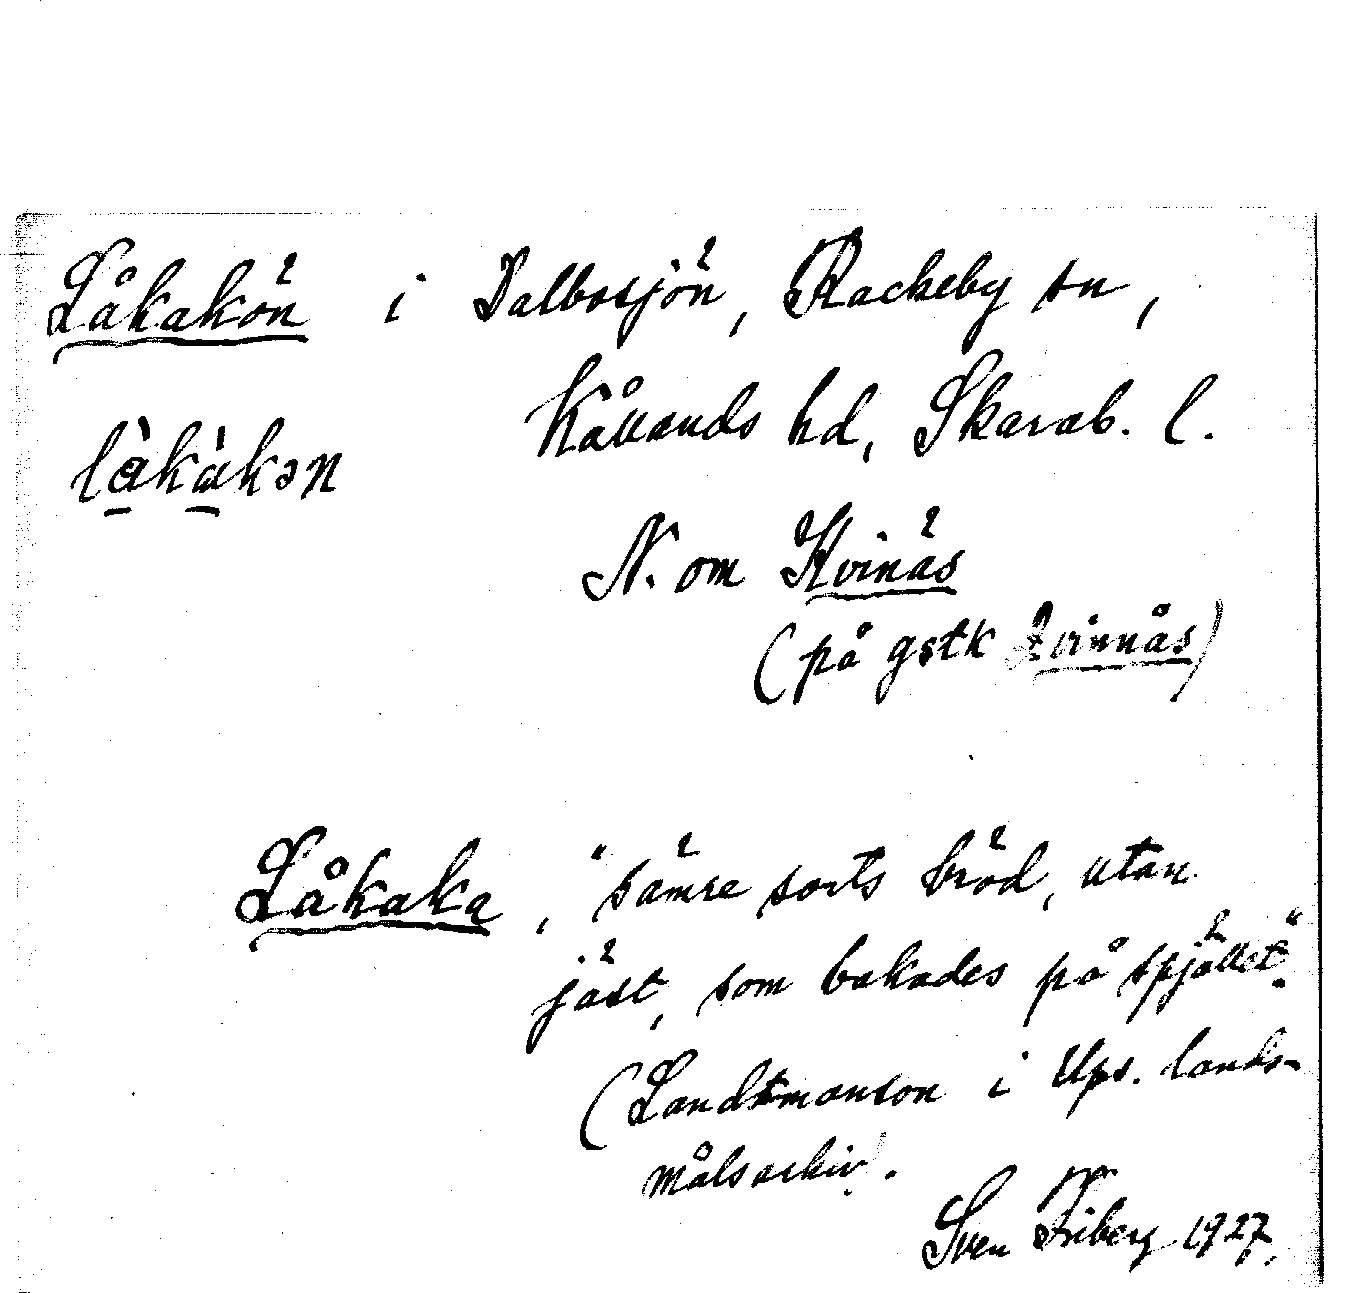 Låkakön i Dalbosjön, Rackeby sn,
Kållands hd, Skarab. l.
låkakən
N. om Kvinäs
(på gstk Kvinnäs)
Låkaka, "sämre sorts bröd, utan
jäst, som bakades på spjället".
(Landtmanson i Ups. lands-
målsarkiv).
Sven Friberg 1927.